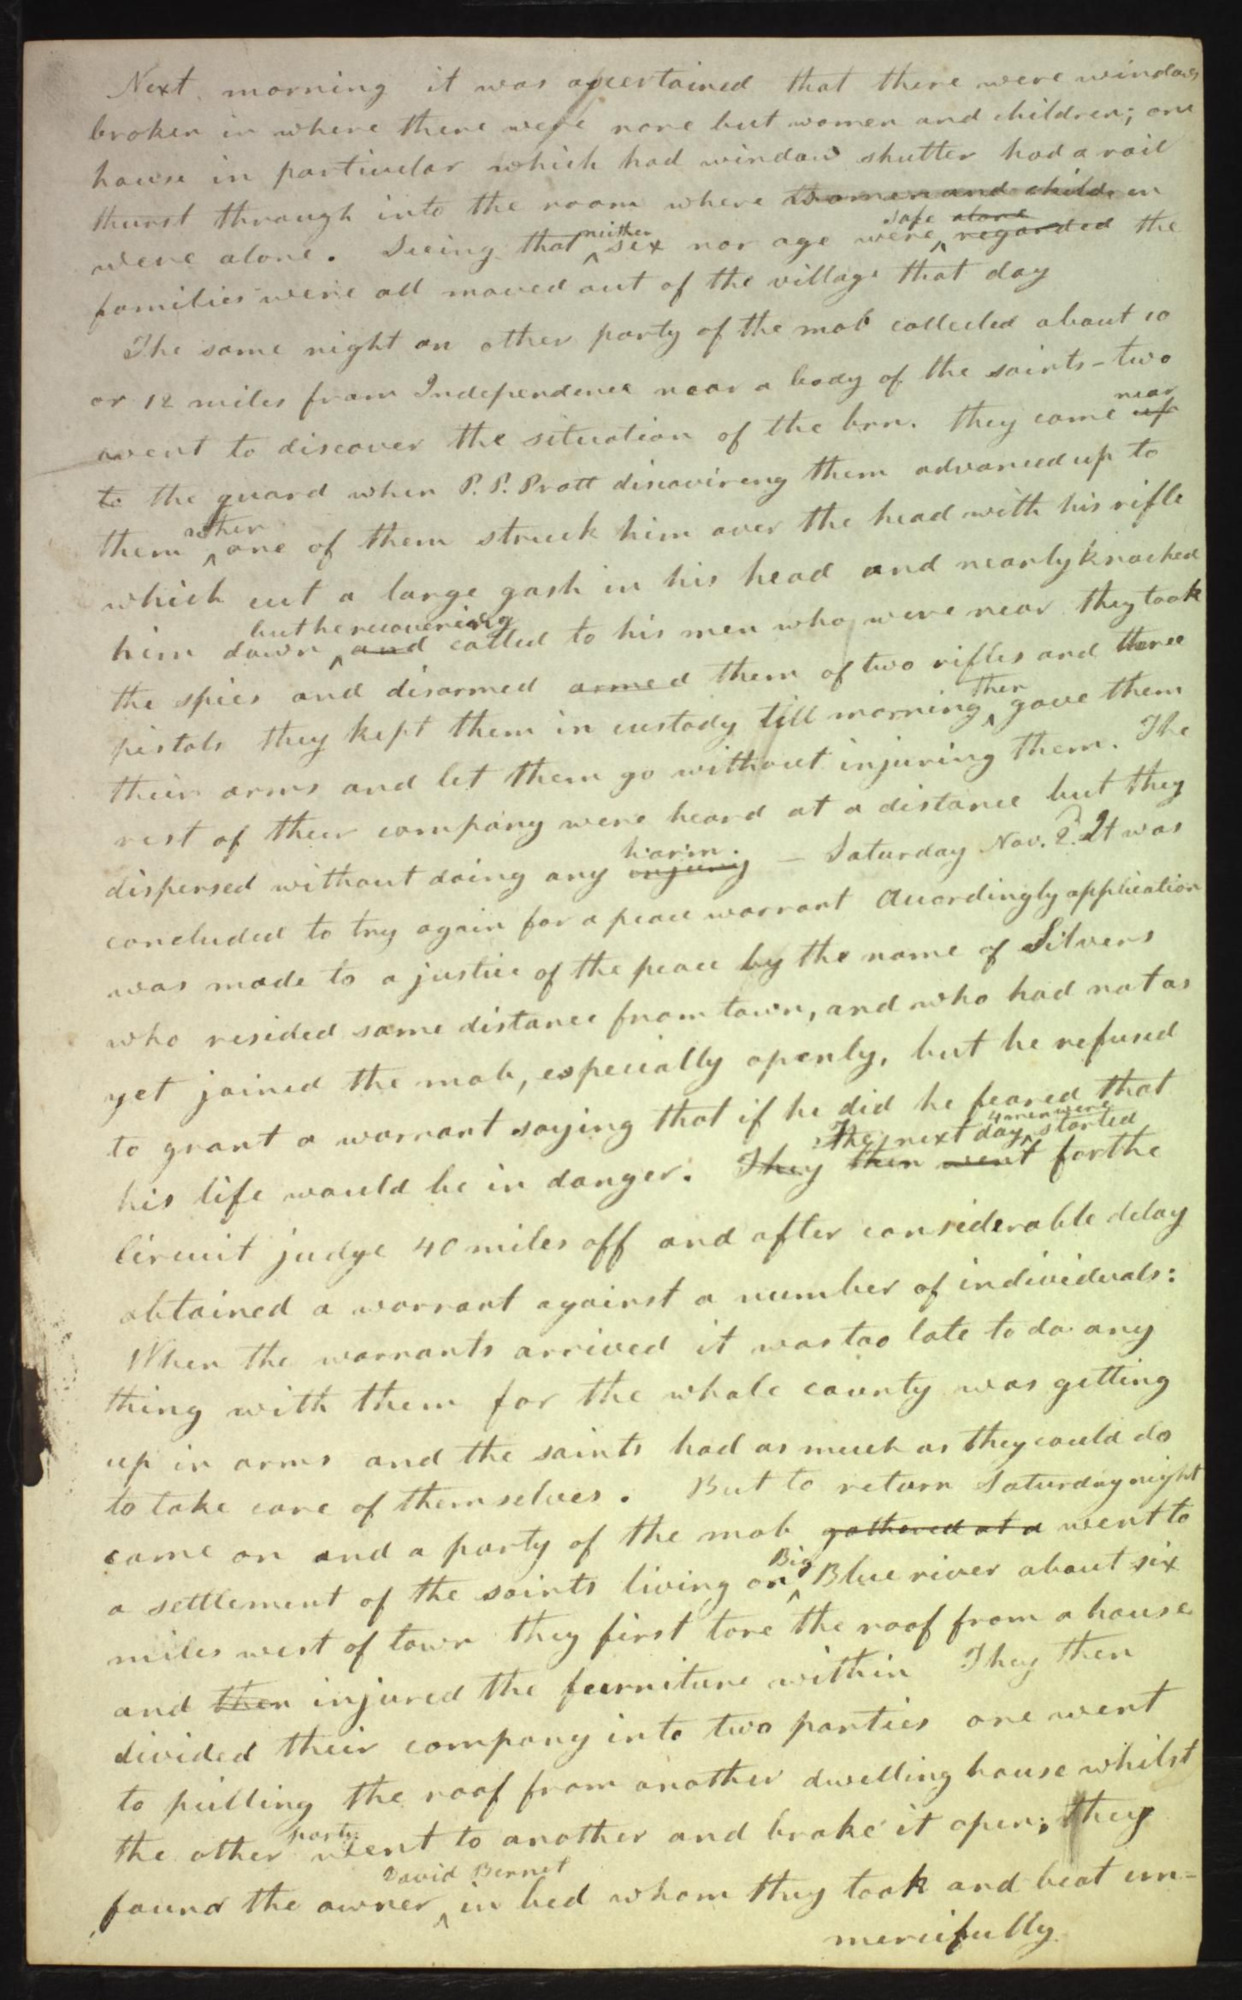 Next morning it was ascertained that there were windows
broken in where there were none but women and children; one
house in particular which had window shutter had a rail
thurst through into the room where women and children
were alone. Seeing that neither sex nor age were safe alone regarded the
families were all moved out of the village that day
The same night an other party of the mob collected about 10
or 12 miles from Independence near a body of the saints – two
went to discover the situation of the brn. they came near up
to the guard when P. P. Pratt discovireng them advanced up to
them when one of them struck him over the head with his rifle
which cut a large gash in his head and nearly knocked
him down but he recovering and called to his men who were near they took
the spies and disarmed armed them of two rifles and three
pistols they kept them in custody till morning then gave them
their arms and let them go without injuring them. The
rest of their company were heard at a distance but they
dispersed without doing any harm. injury – Saturday Nov. 2. It was
concluded to try again for a peace warrant Accordingly application
was made to a justice of the peace by the name of Silvers
who resided some distance from town, and who had not as
yet joined the mob, especially openly, but he refused
to grant a warrant saying that if he did he feared that
his life would be in danger. They then went The next day 4 men were started for the
Circuit judge 40 miles off and after considerable delay
obtained a warrant against a number of individuals:
When the warrants arrived it was too late to do any
thing with them for the whole county was getting
up in arms and the saints had as much as they could do
to take care of themselves. But to return Saturday night
came on and a party of the mob gathered at a went to
a settlement of the saints living on Big Blue river about six
miles west of town they first tore the roof from a house
and then injured the furniture within They then
divided their company into two parties one went
to pulling the roof from another dwelling house whilst
the other party went to another and broke it open; they
found the owner David Bennet in bed whom they took and beat un-
mercifully